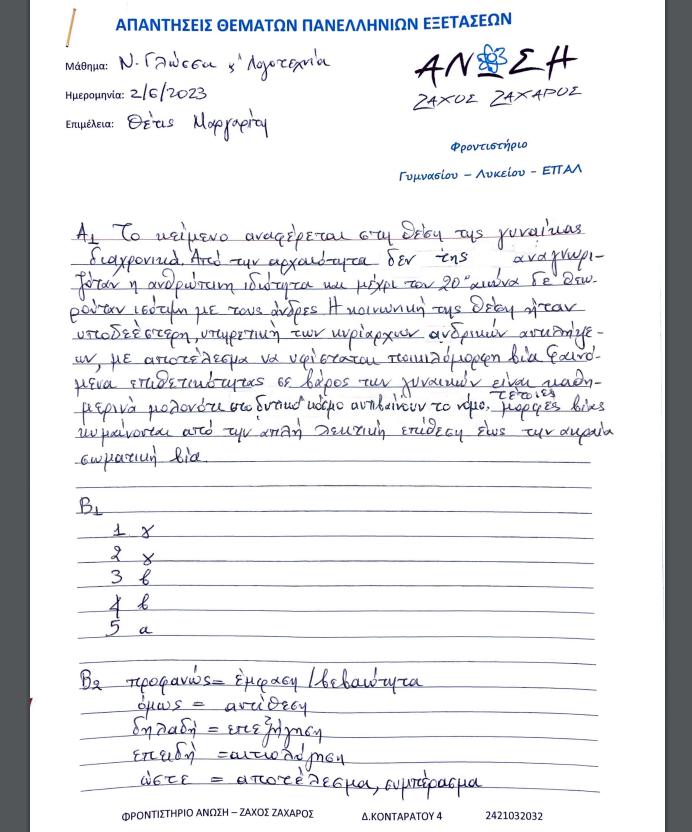 ΑΠΑΝΤΗΣΕΙΣ ΘΕΜΑΤΩΝ ΠΑΝΕΛΛΗΝΙΩΝ ΕΞΕΤΑΣΕΩΝ
Μάθημα: Ν. Γλώσσα & Λογοτεχνία
Ημερομηνία: 2/6/2023
Επιμέλεια: Θέτις Μαργαρίτη
ΑΝΩΣΗ
ΖΑΧΟΣ ΖΑΧΑΡΟΣ
Φροντιστήριο
Γυμνασίου – Λυκείου - ΕΠΑΛ
Α1 Το κείμενο αναφέρεται στη θέση της γυναίκας
διαχρονικά. Από την αρχαιότητα δεν της αναγνωρι-
ζόταν η ανθρώπινη ιδιότητα και μέχρι τον 20° αιώνα δε θεω-
ρούταν ισότιμη με τους άνδρες Η κοινωνική της θέση ήταν
υποδεέστερη, υπηρετική των κυρίαρχων ανδρικών αντιλήψε-
ων, με αποτέλεσμα να υφίσταται ποικιλόμορφη βία Φαινό-
μενα επιθετικότητας σε βάρος των γυναικών είναι καθη-
μερινά μολονότι στο δυτικό κόσμο αντιβαίνουν το νόμο. τέτοιες μορφές βίας
κυμαίνονται από την απλή λεκτική επίθεση έως την ακραία
σωματική βία
Β1
1 γ
2 γ
3 β
4 β
5 α
Β2 προφανώς = έμφαση / βεβαιότητα
όμως = αντίθεση
δηλαδή = επεξήγηση
επειδή = αιτιολόγηση
ώστε = αποτέλεσμα, συμπέρασμα
ΦΡΟΝΤΙΣΤΗΡΙΟ ΑΝΩΣΗ – ΖΑΧΟΣ ΖΑΧΑΡΟΣ Δ.ΚΟΝΤΑΡΑΤΟΥ 4 2421032032